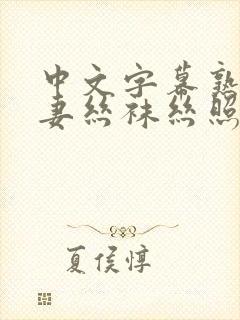 中文字幕熟
妻丝袜丝照
夏侯惇